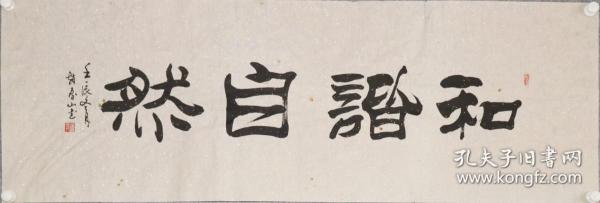 和諧自然
壬辰夏月
孔夫子旧书网
www.kongfz.com